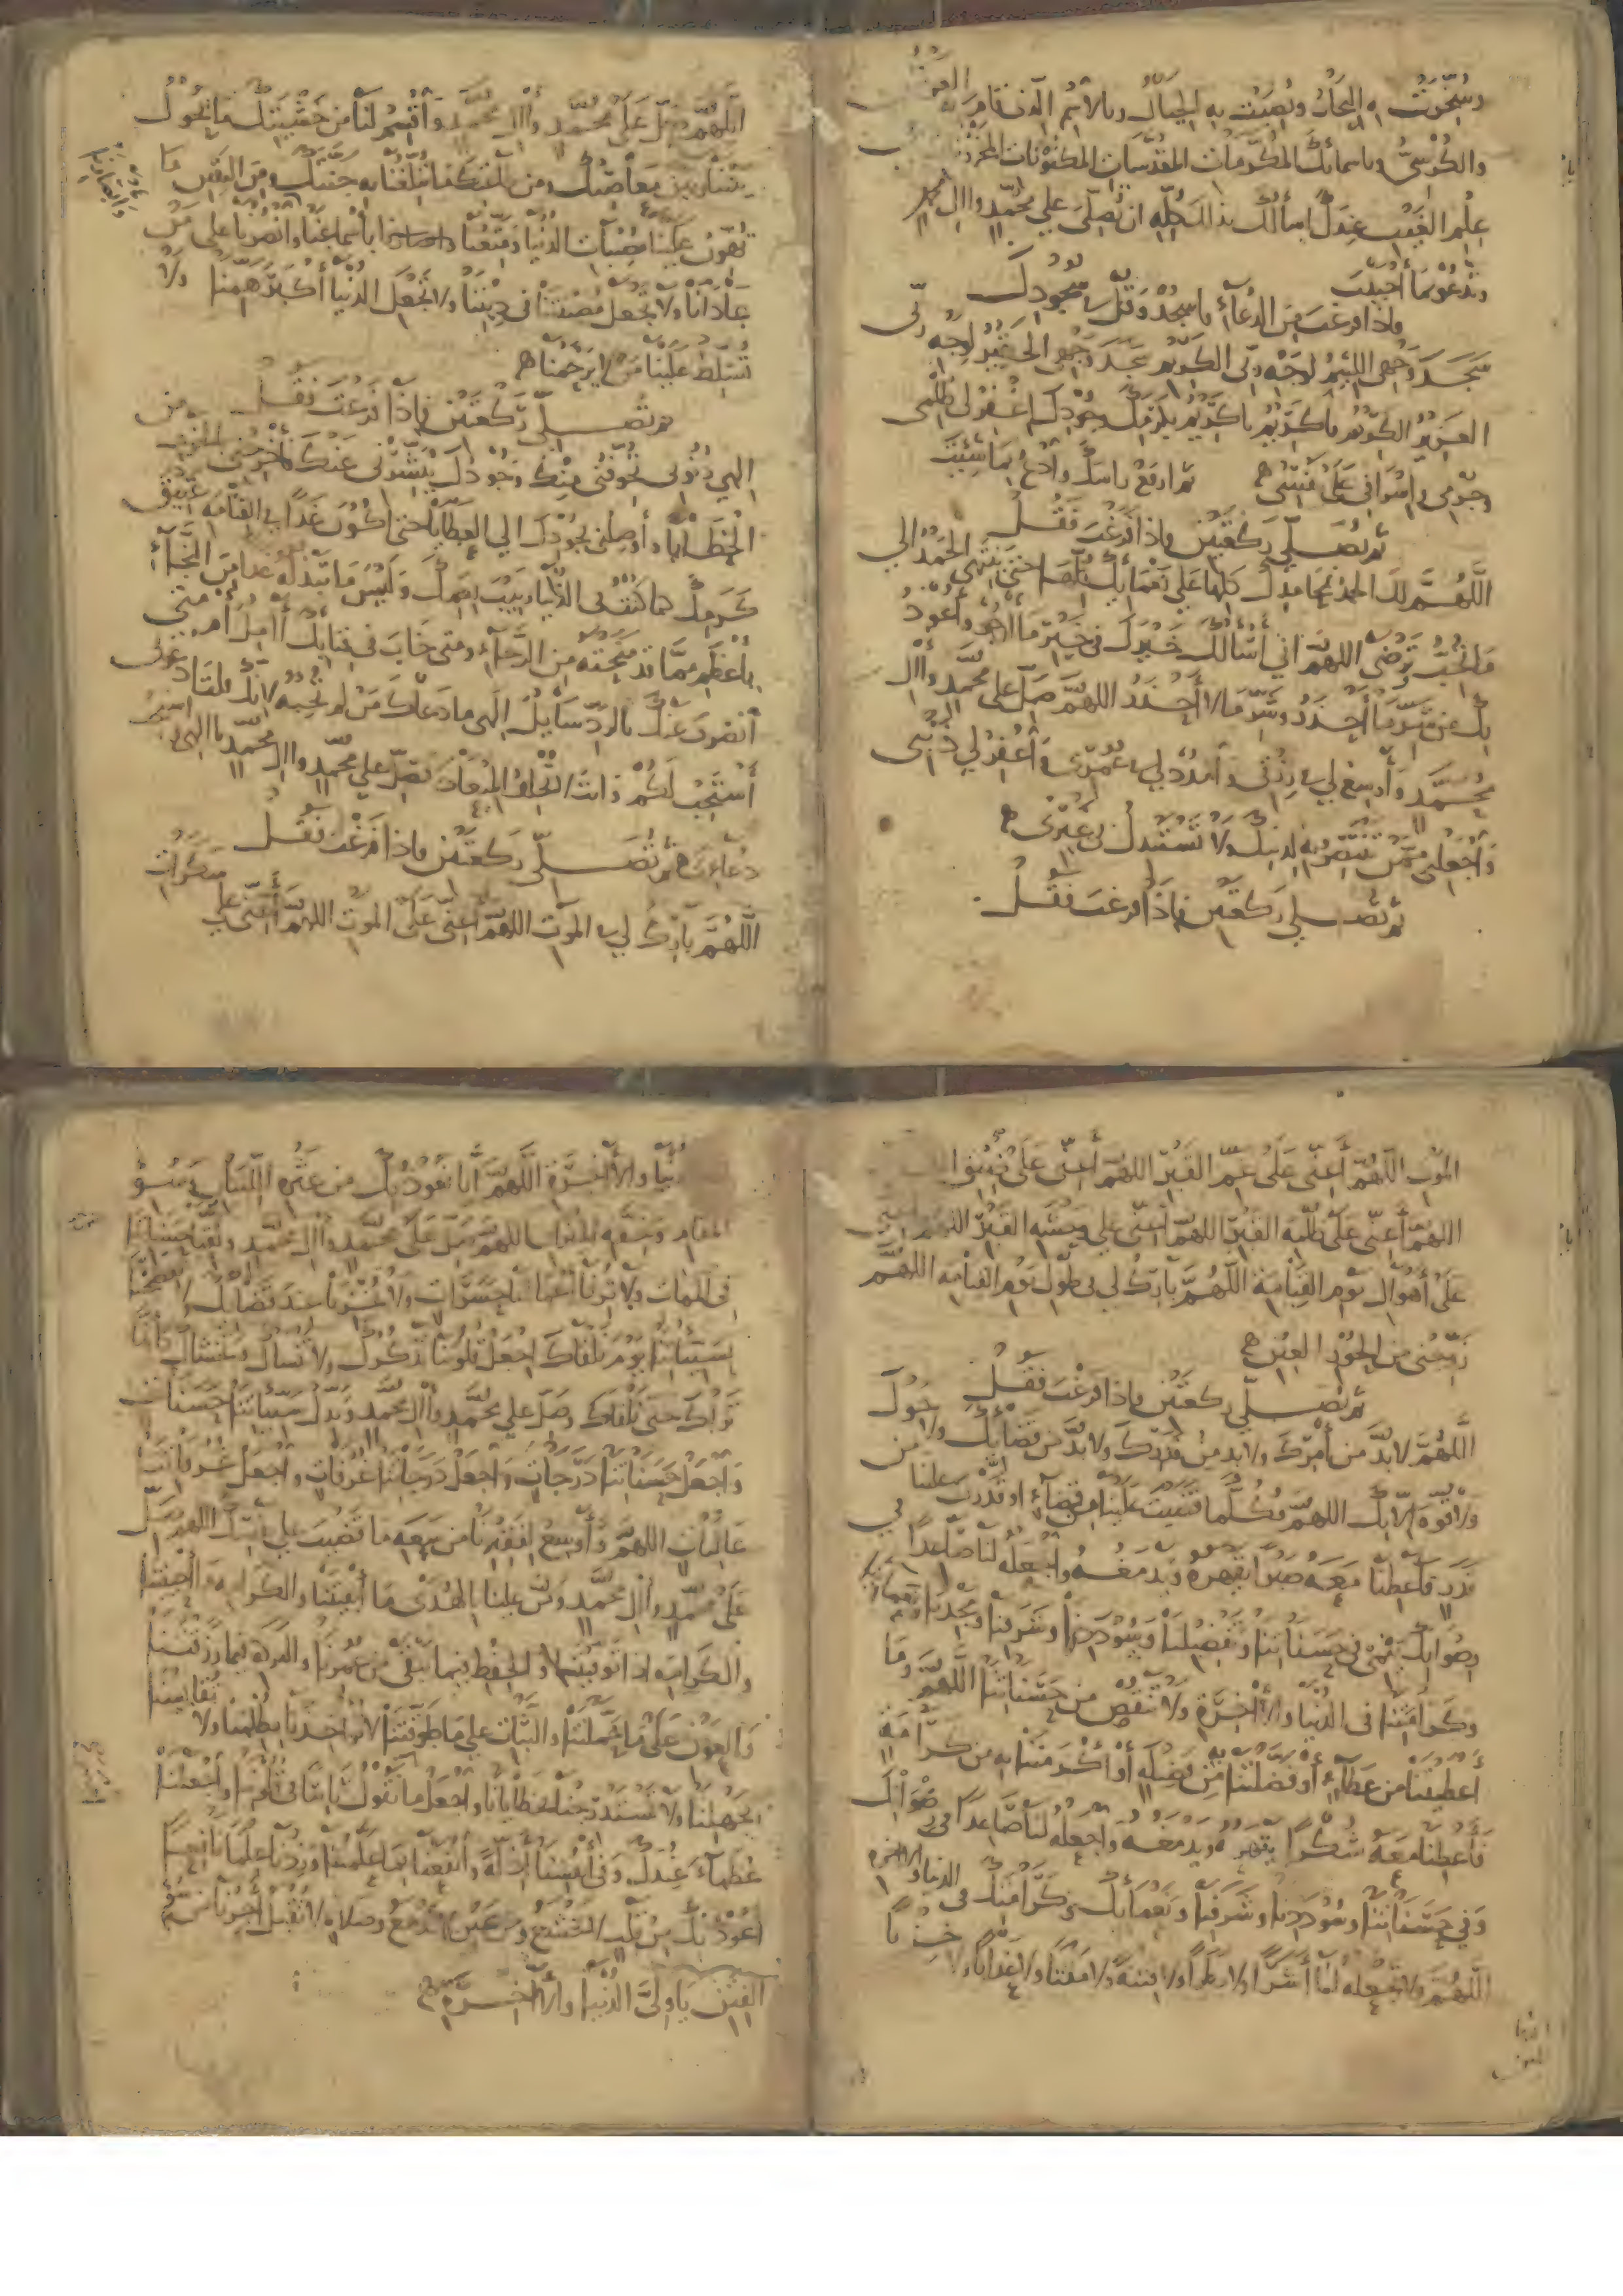 وسخرت به البحار ونصبت به الجبال وبالاسم الذي قام به العرش
والكرسي وباسمائك المكرمات المقدسات المكنونات المخزونات
علم الغيب عندك اسألك بذلك كله ان تصلي علي محمد واال محمد
وتدعو بما أحببت
فاذا فرغت من الدعاء فاسجد وقل في سجودك
سجد وجهي اللئيم لوجه ربي الكريم سجد وجهي الحقير لوجه ربي
العزيز الكريم يا كريم يا كريم يا كريم بكرمك وجودك اغفر لي ظلمي
وجرمي واسرافي على نفسي ثم ارفع راسك وادع بما شئت
ثم تصلي ركعتين فاذا فرغت فقل
اللهم لك الحمد بمحامدك كلها علي نعمائك كلها حتى ينتهي الحمد الي
ما تحب وترضى اللهم اني اسألك خيرك وخير ما أرجو وأعوذ
بك من شر ما أحذر وشر ما لا أحذر اللهم صل على محمد واال
محمد وأوسع لي في رزقي وامدد لي في عمري واغفر لي ذنبي
واجعلني ممن تنتصر به لدينك ولا تستبدل بي غيري
ثم تصلي ركعتين فاذا فرغت فقل
اللهم صل على محمد واال محمد وأقسم لنا من خشيتك ما يحول
بيننا وبين معاصيك ومن طاعتك ما تبلغنا به جنتك ومن اليقين ما
تهون علينا مصيبات الدنيا ومتعنا بأسماعنا وانصرنا على من
عادانا ولا تجعل مصيبتنا في ديننا ولا تجعل الدنيا أكبر همنا ولا
تسلط علينا من لا يرحمنا
ثم تصلي ركعتين فاذا فرغت فقل
الهي ذنوبي تخوفني منك وجودك يبشرني عنك فأخرجني بالخوف من
الخطايا وأوصلني بجودك الي العطايا حتى أكون غدا في القيامة عتيق
كرمك كما كنت في الدنيا ربيب نعمك وليس ما تبذله غدا من النجاء
بأعظم مما قد منحته من الرجاء ومتى خاب في فنائك أامل أم متى
أنصرف عنك بالرد سائل الهي ما دعاك من لم تجبه لأنك قلت ادعوني
أستجب لكم وانت لا تخلف الميعاد فصل علي محمد واال محمد يا الهي واستجب
دعاءي ثم تصلي ركعتين فاذا فرغت فقل
اللهم بارك لي في الموت اللهم أعني على الموت اللهم أعني على سكرات
الموت اللهم أعني على غم القبر اللهم أعني على ضيق
اللهم أعني على ظلمة القبر اللهم أعني علي وحشة القبر اللهم أعني
على أهوال يوم القيامة اللهم بارك لي في طول يوم القيامة اللهم
زوجني من الحور العين
ثم تصلي ركعتين فاذا فرغت فقل
اللهم لا بد من أمرك ولا بد من قدرك ولا بد من قضائك ولا حول
ولا قوة إلا بك اللهم فكلما قضيت علينا من قضاء او قدرت علينا من
قدر فأعطنا معه صبرا يقهره ويدمغه واجعله لنا صاعدا في
رضوانك ينمي في حسناتنا وتفضيلنا وسوددنا وشرفنا ومجدنا ونعمائنا
وكرامتنا في الدنيا والاخرة ولا تنقص من حسناتنا اللهم وما
أعطيتنا من عطاء أو فضلتنا به من فضيلة أو أكرمتنا به من كرامة
فأعطنا معه شكرا يقهره ويدمغه واجعله لنا صاعدا في رضوانك
وفي حسناتنا وسوددنا وشرفنا ونعمائك وكرامتك في الدنيا والاخرة
اللهم ولا تجعله لنا أشرا ولا بطرا ولا فتنة ولا مقتا ولا عذابا ولا خزيا
الدنيا والأاخرة اللهم أنا نعوذ بك من عثرة اللسان وسوء
المقام وخفة الميزان اللهم صل على محمد واال محمد ولقنا حسناتنا
في الممات ولا ترنا أعمالنا حسرات ولا تخزنا عند قضائك ولا تفضحنا
بسيئاتنا يوم نلقاك اجعل قلوبنا تذكرك ولا تنساك وتخشاك كأنها
تراك حتى تلقاك وصل علي محمد واال محمد وبدل سيئاتنا حسنات
واجعل حسناتنا درجات واجعل درجاتنا غرفات واجعل غرفاتنا
عاليات اللهم وأوسع لفقيرنا من سعة ما قضيت علي نفسك اللهم صل
على محمد واال محمد ومن علينا بالهدى ما أبقيتنا والكرامة ما أحييتنا
والكرامة اذا توفيتنا والحفظ فيما بقي من عمرنا والبركة فيما رزقتنا
والعون على ما حملتنا والثبات علي ما طوقتنا لا تواخذنا بظلمنا ولا تقايسنا
بجهلنا ولا تستدرجنا بخطايانا واجعل ما نقول ثابتا في قلوبنا واجعلنا
عظماء عندك وفي أنفسنا أذلة وانفعنا بما علمتنا وزدنا علما نافعا
أعوذ بك من قلب لا يخشع ومن عين لا تدمع وصلاة لا تقبل أجرنا من سوء
الفتن يا ولي الدنيا والأاخرة